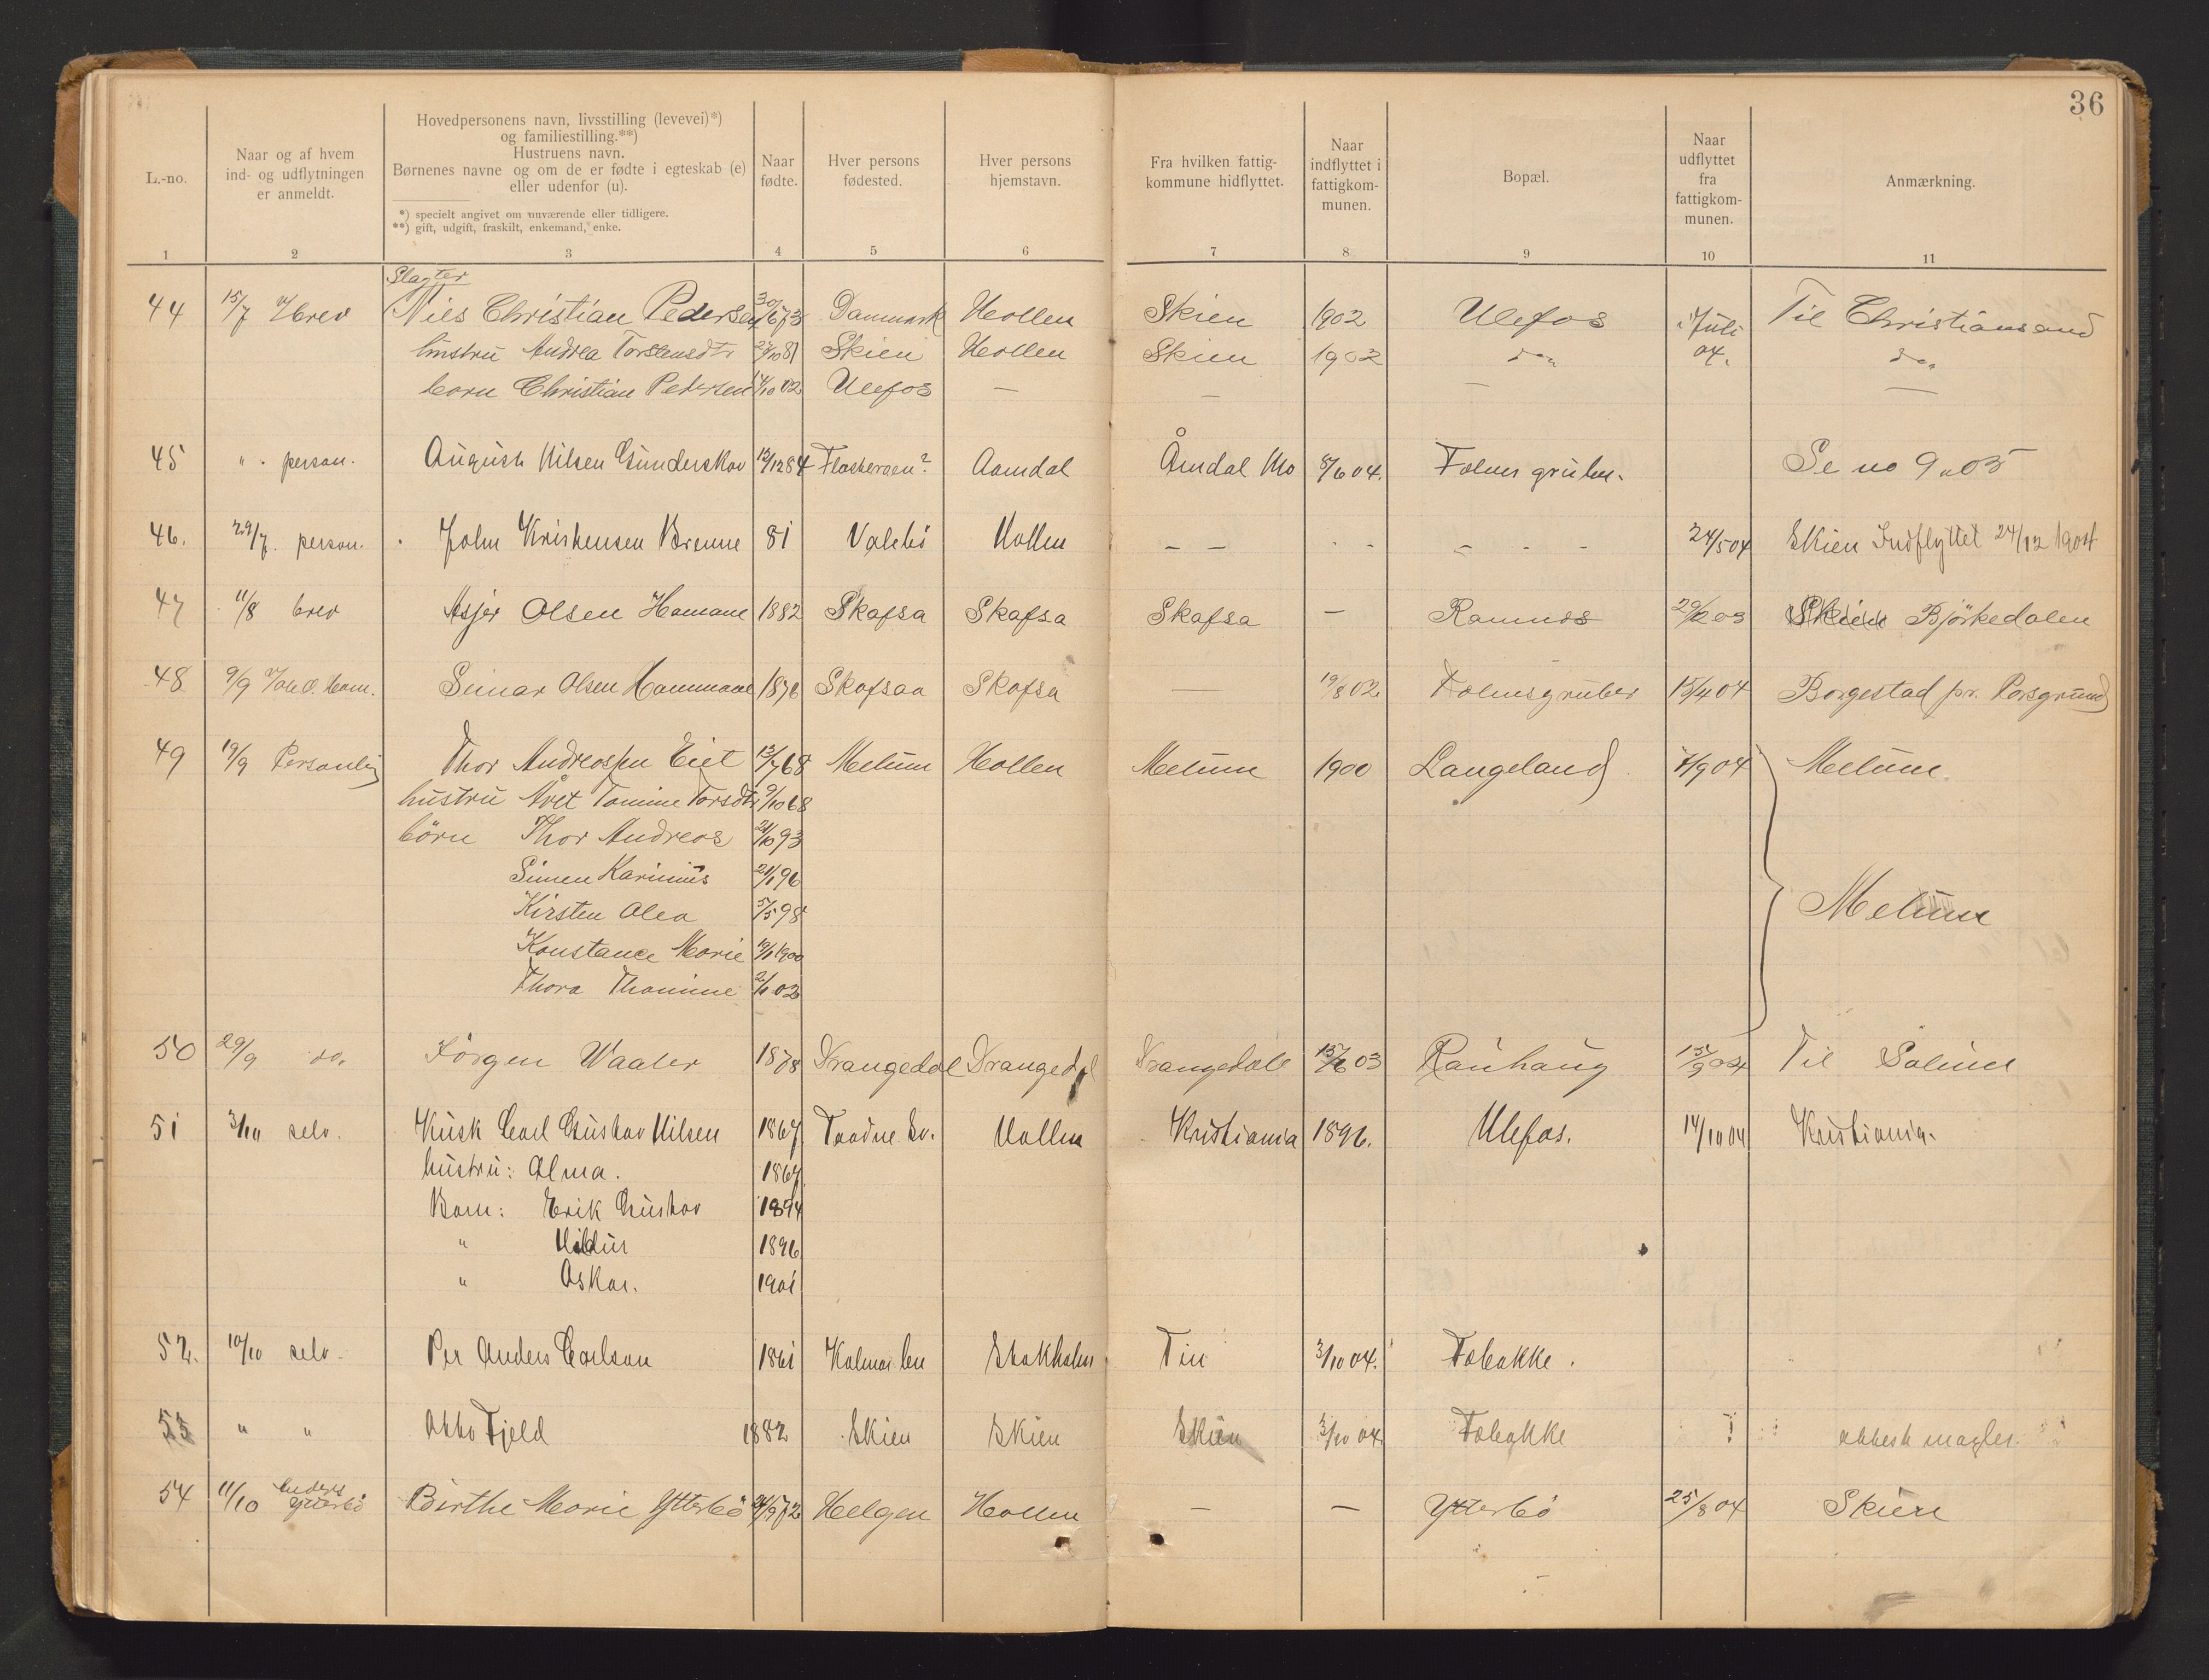 36
L.-no.
Naar og af hvem
ind- og udflytningen
er anmeldt.
Hovedpersonens navn, livsstilling (levevei)*)
og familiestilling.**)
Hustruens navn.
Børnenes navne og om de er fødte i egteskab (e)
eller udenfor (u).
*) specielt angivet om nuværende eller tidligere.
**) gift, udgift, fraskilt, enkemand, enke.
Naar
fødte.
Hver persons
fødested.
Hver persons
hjemstavn.
Fra hvilken fattig-
kommune hidflyttet.
Naar
indflyttet i
fattigkom-
munen.
Bopæl.
Naar
udflyttet
fra
fattigkom-
munen.
Anmærkning.
1 2 3 4 5 6 7 8 9 10 11
Slagter
44 15/7 brev Nils Christian Pedersen 30/6 73 Danmark Hollen Skien 1902 Ulefos i Juli Til Christianssand
hustru Andrea Torstensdtr 27/10 81 Skien Hollen Skien 1902 do 04. do
barn Christian Petersen 14/10 02 Ulefos — — — —
45 " . person. August Nilsen Gunderskov 12/12 84 Flasbergen? Aamdal Åmdal Mo 8/6 04. Folmer gruben. Se no 9 . 05
46. 29/7. person. John Kristensen Brenne 81 Valebö Hollen — — - - - - - 24/5 04 Skien Indflyttet 24/12 1904
47 11/8 brev Asjer Olsen Hamane 1882 Skafsa Skafsa Skafsa — Ramnes 29/2 03 Skien Bjørkedalen
48 9/9 Ole O. Ham. Seinar Olsen Hammane 1876 Skafsaa Skafsa — 19/8 02 Folmsgruber 15/4 04 Borgestad pr. Porsgrund
49 19/9 Personlig Thor Andreassen Eiet 13/7 68 Melum Hollen Melum 1900 Langeland 7/9 04 Melum
hustru Avet Tomine Torsdtr 9/10 68
börn Thor Andreas 21/10 93
Simen Karinius 21/1 96
Kirsten Olea 5/5 98 Melum
Konstance Marie 19/1 1900
Thora Thomine 2/1 02
50 29/9 do. Jörgen Waaler 1878 Drangedal Drangedal Drangedal 15/6 03 Rauhaug 15/9 04 Til Solum
51 3/10 selv. Kusk Carl Gustav Nilsen 1867 Hollen Kristiania 1896. Ulefos. 14/10 04 Kristiania.
hustru: Alma. 1867
Barn: Erik Gustav 1894
" Hildur 1896
" Oskar. 1901
52. 10/10 selv. Per Anders Carlson 1861 Kalmar len Stokholm Tin 3/10 04. Fæbakke.
53 " " Otto Fjeld 1882 Skien Skien Skien 3/10 04. Fæbakke ! attest mangler.
54 11/10 Anders Ytterbö Birthe Marie Ytterbö 24/9 72 Helgen Hollen — — Ytterbö 25/8 04 Skien